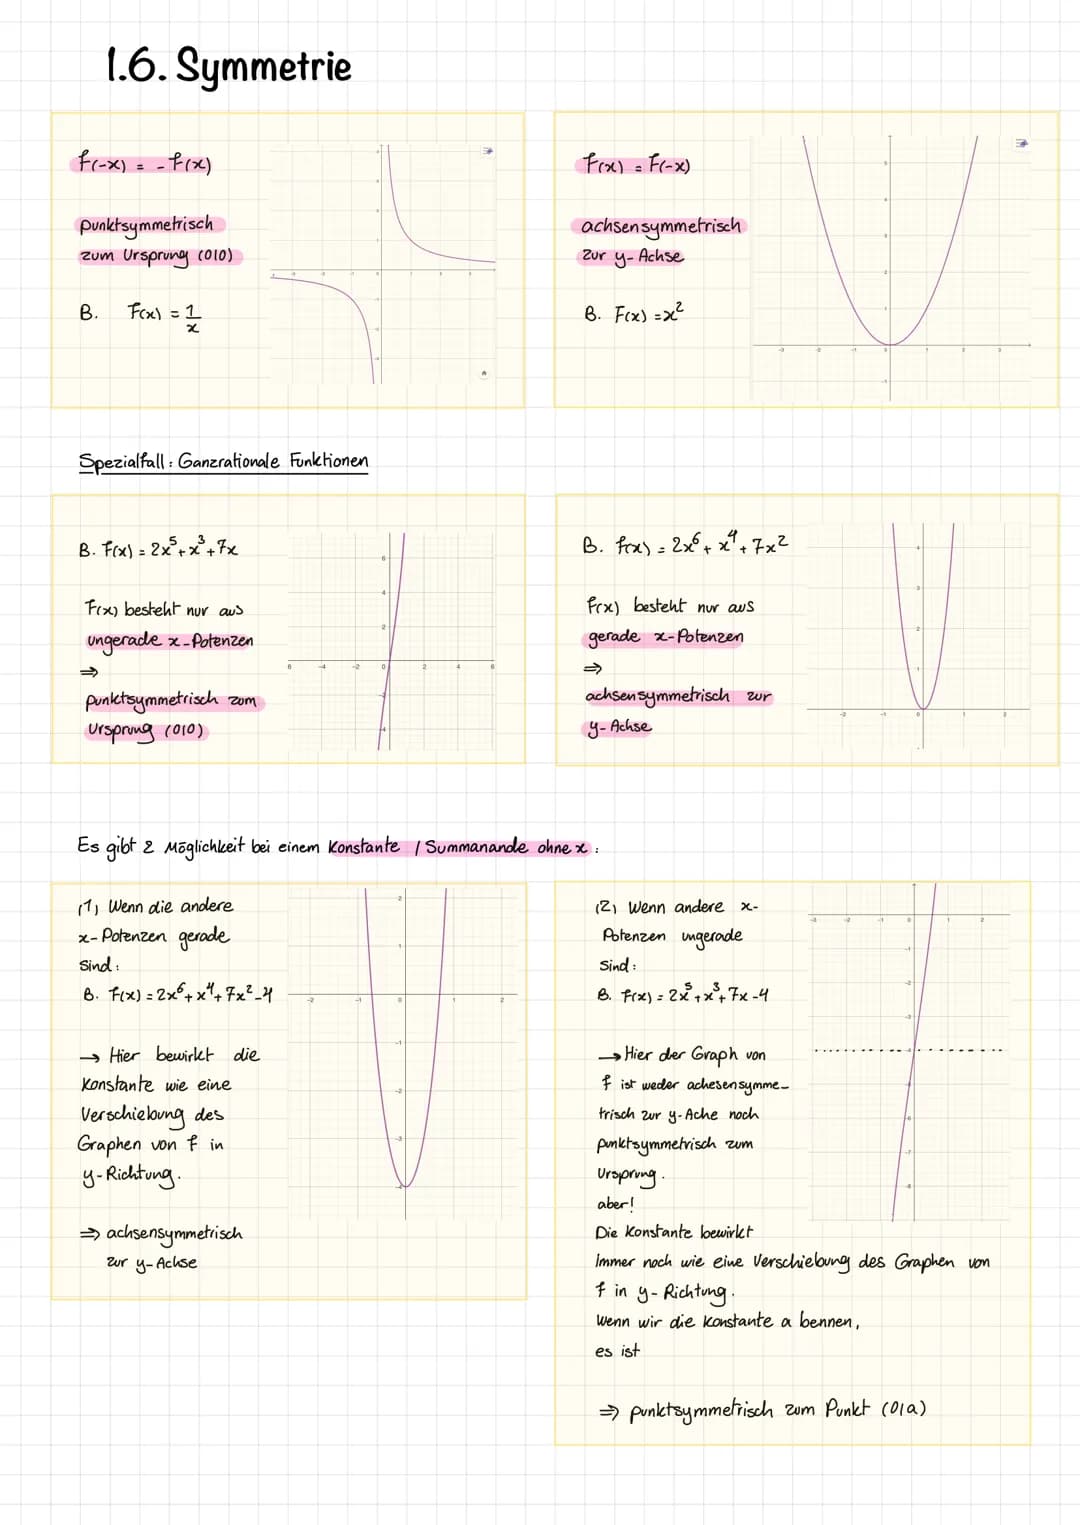 1.6. Symmetrie
f(-x) = -f(x)
punktsymmetrisch
zum Ursprung (0|0)
B. F(x) = 1/x
F(x) = F(-x)
achsensymmetrisch
zur y-Achse
B. F(x) = x²
Spezialfall: Ganzrationale Funktionen
B. F(x) = 2x⁵ + x³ + 7x
F(x) besteht nur aus
ungerade x-Potenzen
⇒
punktsymmetrisch zum
Ursprung (0|0)
B. f(x) = 2x⁶ + x⁴ + 7x²
f(x) besteht nur aus
gerade x-Potenzen
⇒
achsensymmetrisch zur
y-Achse
Es gibt 2 Möglichkeit bei einem Konstante / Summanande ohne x:
(1) Wenn die andere
x-Potenzen gerade
sind:
B. F(x) = 2x⁶ + x⁴ + 7x² - 4
→ Hier bewirkt die
Konstante wie eine
Verschiebung des
Graphen von f in
y-Richtung.
⇒ achsensymmetrisch
zur y-Achse
(2) Wenn andere x-
Potenzen ungerade
sind:
B. F(x) = 2x⁵ + x³ + 7x - 4
→ Hier der Graph von
f ist weder achesensymme-
trisch zur y-Ache noch
punktsymmetrisch zum
Ursprung.
aber!
Die Konstante bewirkt
immer noch wie eine Verschiebung des Graphen von
f in y-Richtung.
Wenn wir die Konstante a bennen,
es ist
⇒ punktsymmetrisch zum Punkt (0|a)